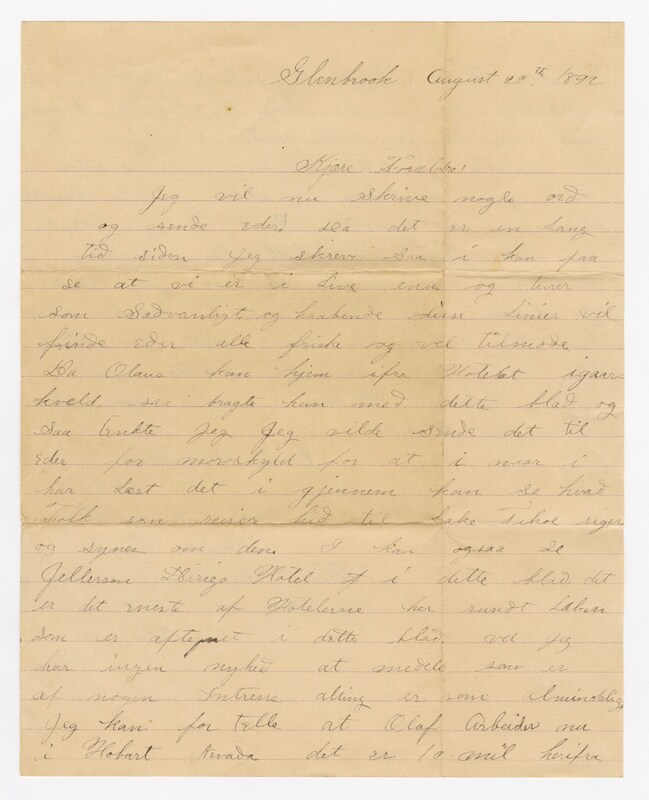 Glenbrook August 29th 1892
Kjære Forældre!
Jeg vil nu skrive nogle ord
og sende eder! Da det er en Lang
tid siden Jeg skrev Saa i kan faa
se at vi er i Live enu og turer
som Sædvanligt og haabende disse Linier vil
finde Eder alle friske og vel tilmode
Da Olaus kom hjem ifra Hotelet igaar
kveld saa bragte han med dette blad og
Saa tenkte Jeg Jeg vilde sende det til
Eder for moroskyld for at i naar i
har Læst det i gjennem kan se hvad
Folk som reiser hid til Lake Tahoe siger
og synes om den. I kan ogsaa se
Jellerson Dirigo Hotel i dette blad det
er det eneste af Hotelerne her rundt Laken
som er aftegnet i dette blad. vel Jeg
har ingen nyhed at medele som er
af nogen Intrese alting er som Almindelig,
Jeg kan for telle at Olaf Arbeider nu
i Hobart Nevada det er 10 mil herifra